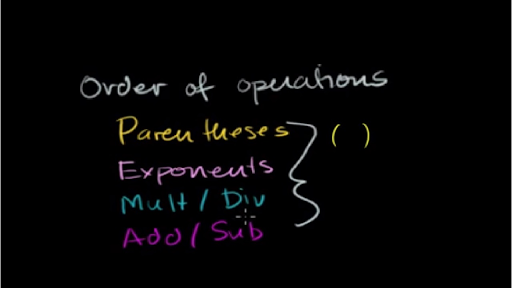 Order of operations
Parentheses ( )
Exponents
Mult / Div
Add / Sub